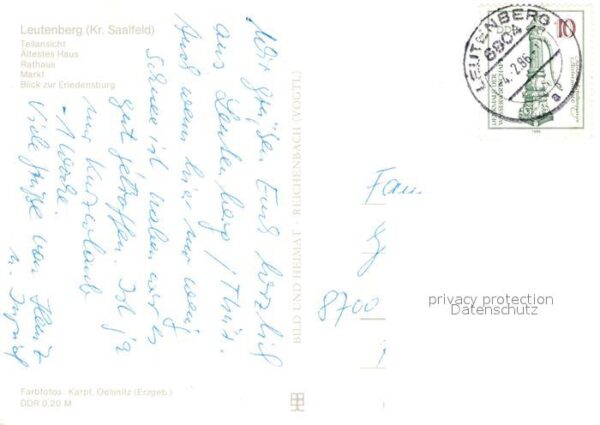 Leutenberg (Kr. Saalfeld)
Teilansicht
Ältestes Haus
Rathaus
Markt
Blick zur Friedensburg
Wir grüßen Euch herzlich
aus Leutenberg / Thür.
Auch wenn hier nur wenig
Schnee ist haben wir es
gut getroffen. Ist ja
nur Kurzurlaub
- 1 Woche.
Viele Grüße von Heinz
u. Ingrid
BILD UND HEIMAT · REICHENBACH (VOGTL)
Farbfotos: Karpf, Oelsnitz (Erzgeb.)
DDR 0,20 M
LEUTENBERG
6804
-4.2.86-
ap
10
DDR
DENKMALE DER
WASSERWIRTSCHAFT
1986
Fam
8700
privacy protection
Datenschutz